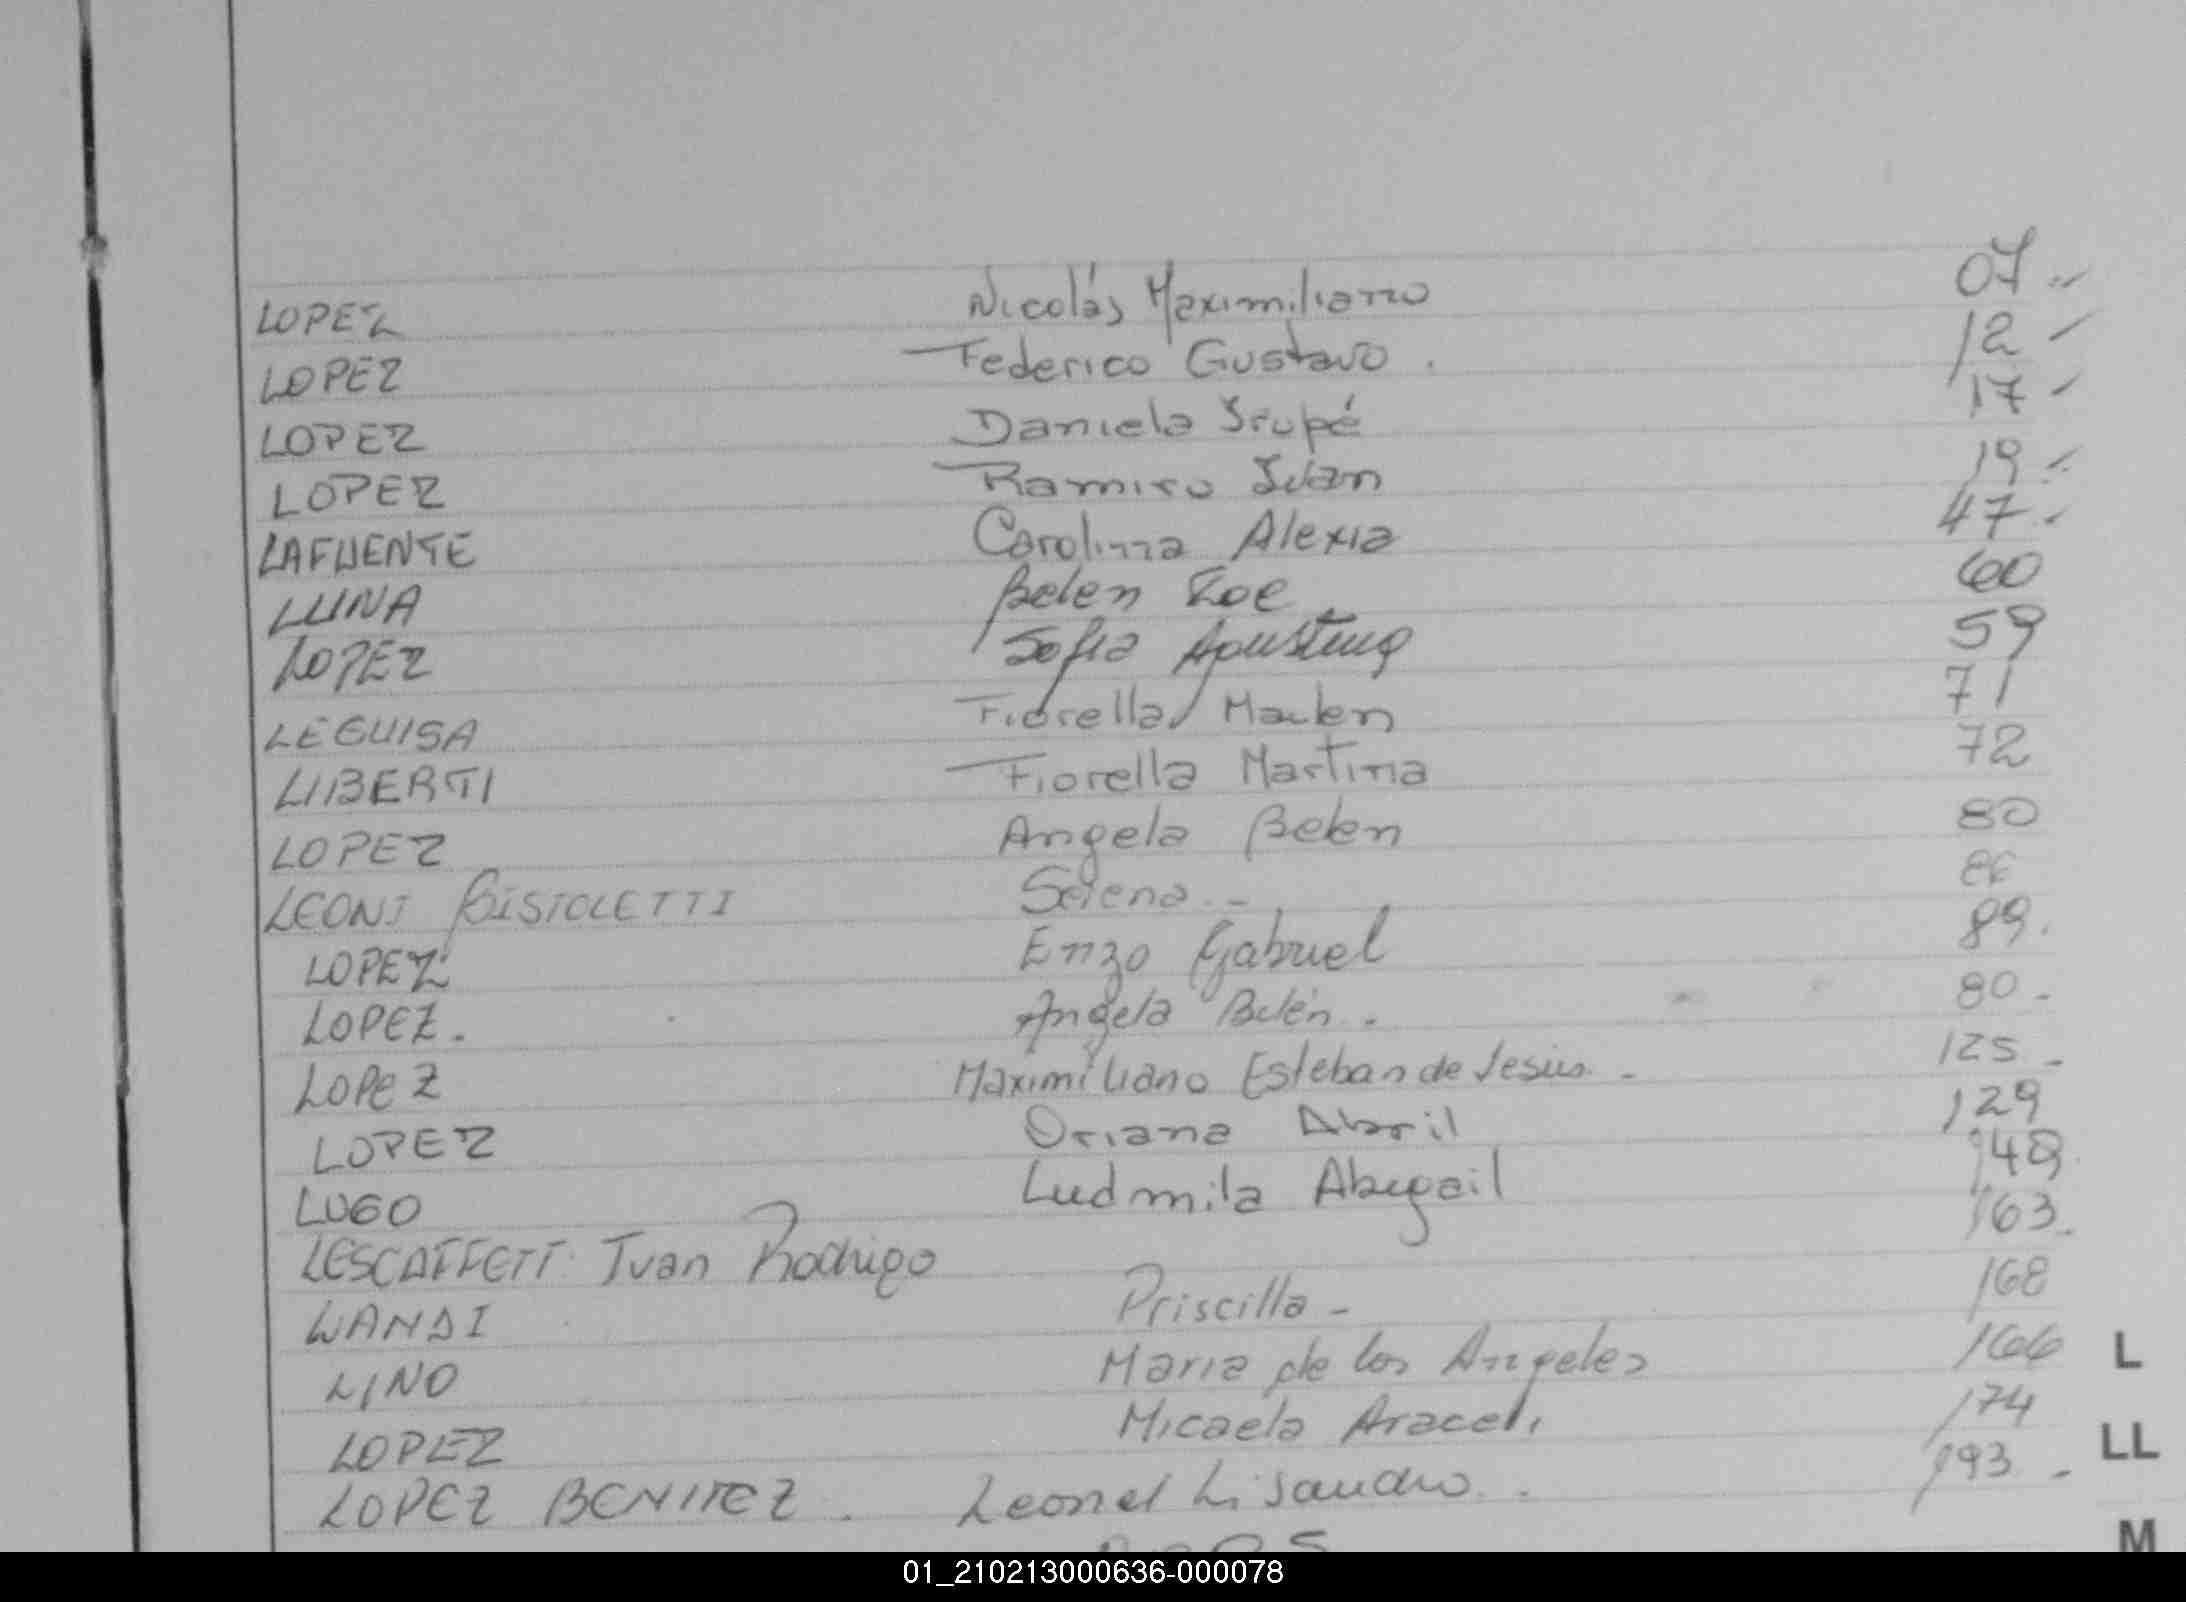 LOPEZ Nicolás Maximiliano 07
LOPEZ Federico Gustavo . 12
LOPEZ Daniela Irupé 17
LOPEZ Ramiro Iván 19
LAFUENTE Carolina Alexia 47
LUNA Belen Zoe 60
LOPEZ Sofia Agustina 59
LEGUISA Fiorella Mailen 71
LIBERTI Fiorella Martina 72
LOPEZ Angela Belen 80
LEONI BISIOLETTI Selena 86
LOPEZ Enzo Gabriel 89.
LOPEZ. Angela Belén. 80-
LOPEZ Maximiliano Esteban de Jesús. - 125-
LOPEZ Oriana Abril 129
LUGO Ludmila Abigail 148
LESCAFFETT Ivan Rodrigo 163-
LANDI Priscilla- 168
LINO Maria de los Angeles 166
LOPEZ Micaela Araceli 174
LOPEZ BENITEZ. Leonel Lisandro. 193 -
L
LL
M
01_210213000636-000078